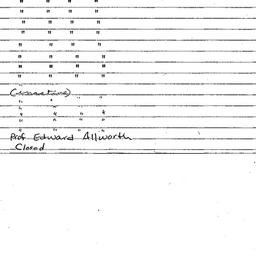 " " " "
" " " "
" " " "
" " " "
" " " "
" " " "
" " " "
" " " "
" " " "
" " " "
" " " "
Prof Edward Allworth
Closed